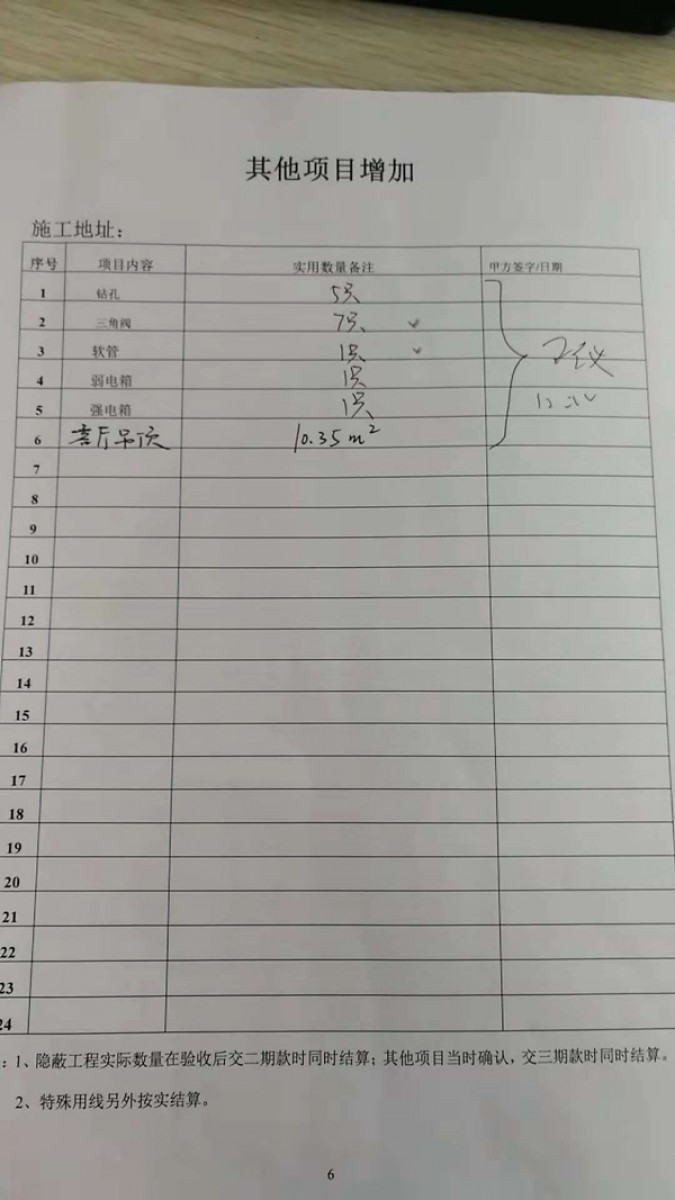 其他项目增加
施工地址：
序号 项目内容 实用数量备注 甲方签字/日期
1 钻孔 5只
2 三角阀 7只 ✓
3 软管 1只 ✓
4 弱电箱 1只
5 强电箱 1只
6 客厅吊顶 10.35m²
7
8
9
10
11
12
13
14
15
16
17
18
19
20
21
22
23
24
：1、隐蔽工程实际数量在验收后交二期款时同时结算；其他项目当时确认，交三期款时同时结算。
2、特殊用线另外按实结算。
6